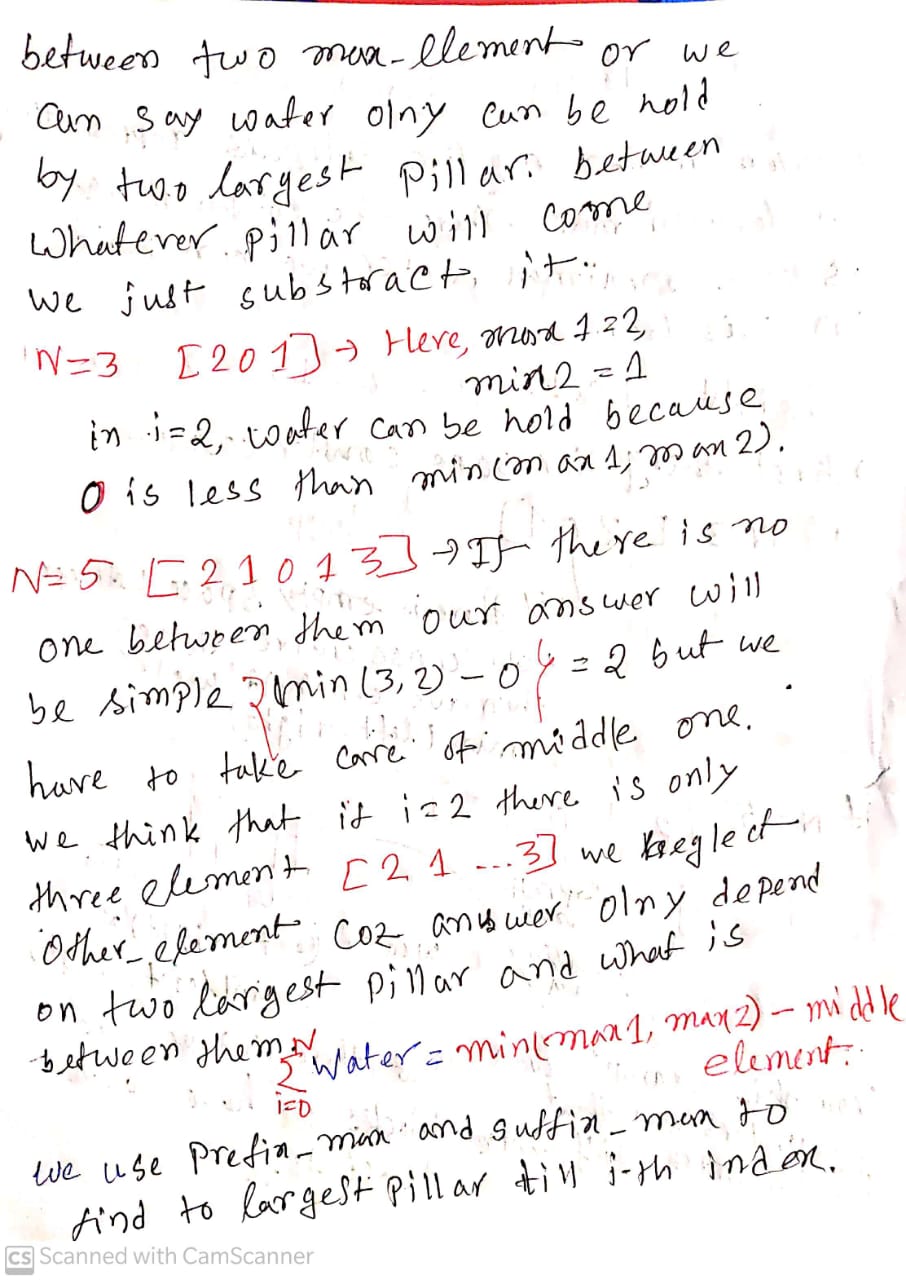 between two max-element or we
can say water olny can be hold
by two largest pillar. between
whatever pillar will come
we just substract it.
N=3 [2 0 1] → Here, max 1 = 2,
min2 = 1
in i=2, water can be hold because
0 is less than min(max 1, max 2).
N=5 [2 1 0 1 3] → If there is no
one between them our answer will
be simple {min (3,2) - 0} = 2 but we
have to take care of middle one.
we think that if i=2 there is only
three element [2 1 ...3] we neglect
Other_element coz answer olny depend
on two largest pillar and what is
between them N
∑ Water = min(max1, max2) - middle
i=0 element.
we use Prefix_max and suffix_max to
find to largest pillar till i-th index.
CS Scanned with CamScanner